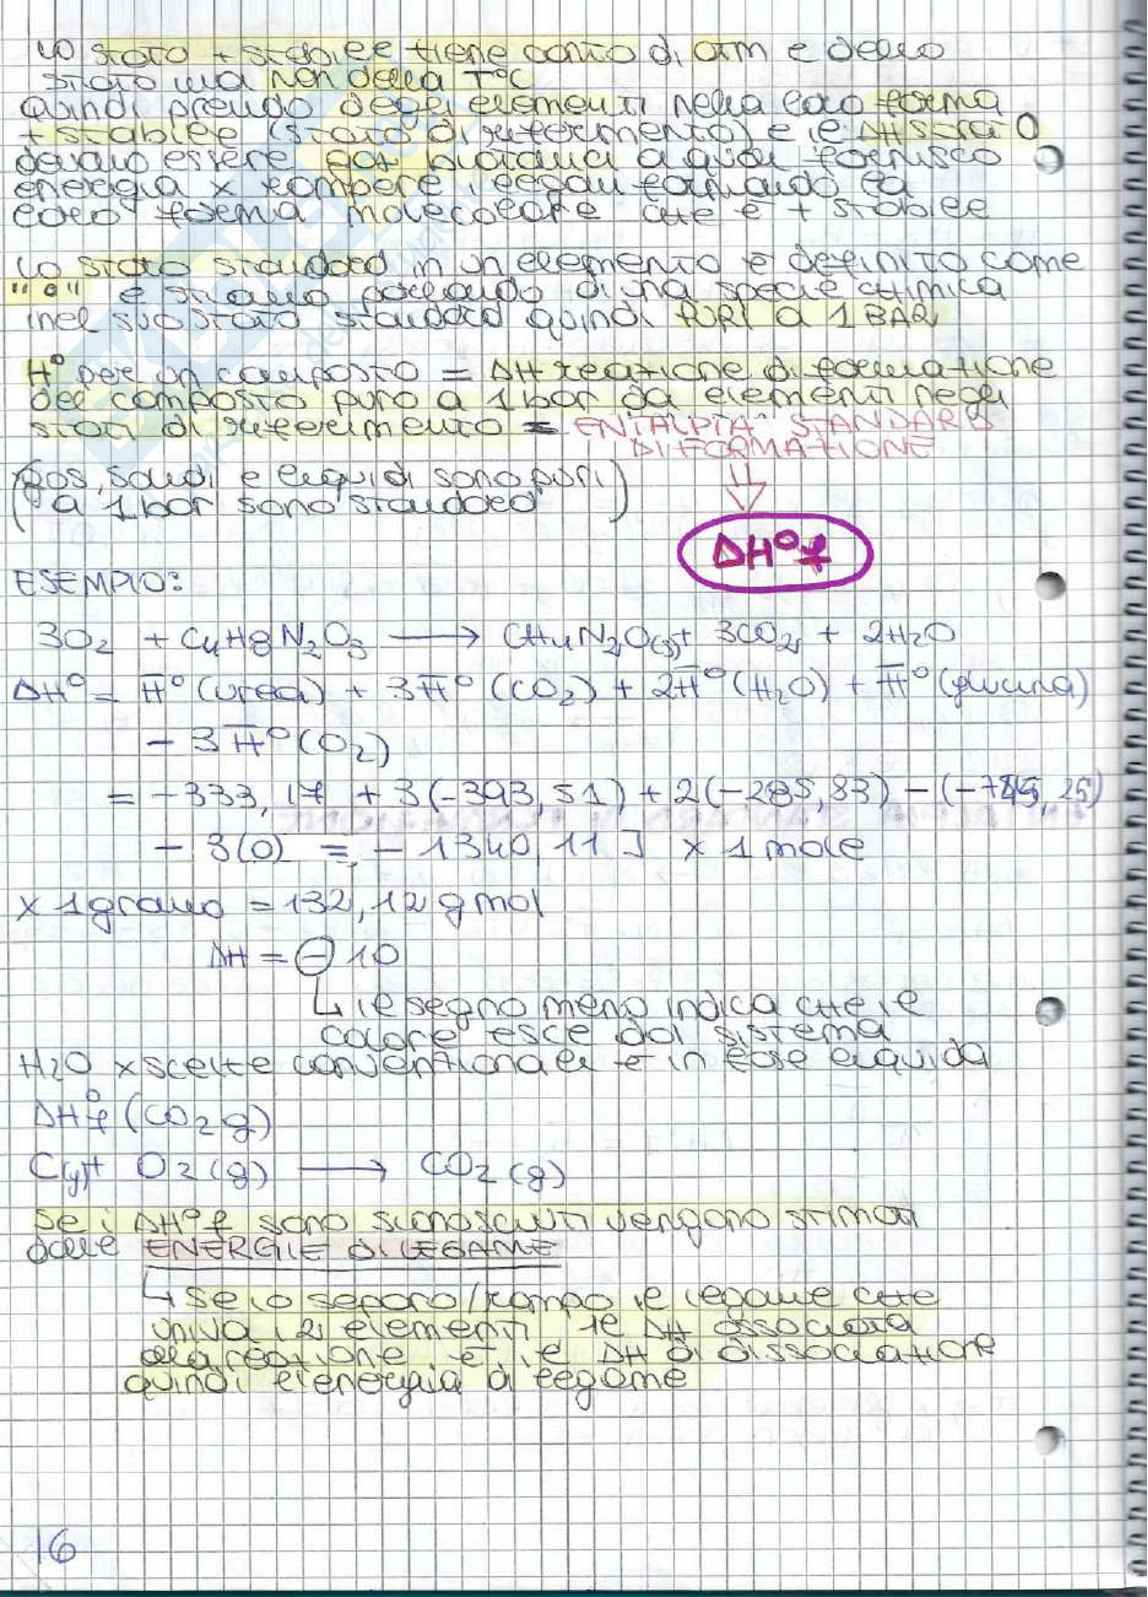 Lo stato + stabile tiene conto di atm e dello
stato ma non della T°C
quindi prendo degli elementi nella loro forma
+ stabile (stato di riferimento) e il ΔH sarà 0
devono essere gas biatomici a quei fornisco
energia x rompere i legami formando la
loro forma molecolare che è + stabile
Lo stato standard in un elemento è definito come
"°" e stiamo parlando di una specie chimica
nel suo stato standard quindi PURI a 1 BAR
H° per un composto = ΔH reazione di formazione
del composto puro a 1 bar da elementi negli
stati di riferimento = ENTALPIA STANDARD
DI FORMAZIONE
(gas, solidi e liquidi sono puri
a 1 bar sono standard)
ΔH°f
ESEMPIO:
3O2 + C4H8N2O3 → CH4N2O(s) + 3CO2 + 2H2O
ΔH° = H̅° (urea) + 3H̅° (CO2) + 2H̅° (H2O) + H̅° (glicina)
- 3H̅° (O2)
= -333,17 + 3(-393,51) + 2(-285,83) - (-745,25)
- 3(0) = - 1340,11 J x 1 mole
x 1 grammo = 132,12 g mol
ΔH = - 10
↳ il segno meno indica che il
calore esce dal sistema
H2O x scelte convenzionali è in fase liquida
ΔH°f (CO2 g)
C(g) + O2 (g) → CO2 (g)
Se i ΔH°f sono sconosciuti vengono stimati
dalle ENERGIE DI LEGAME
↳ se io separo/rompo il legame che
univa i 2 elementi il ΔH associata
alla reazione è il ΔH di dissociazione
quindi l'energia di legame
16